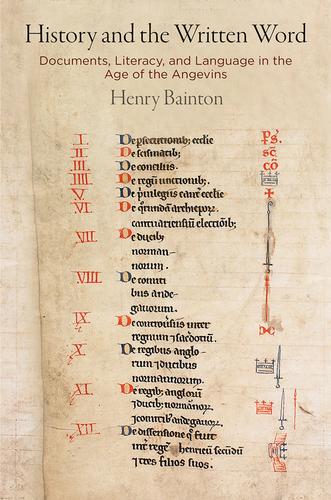 History and the Written Word
Documents, Literacy, and Language in the
Age of the Angevins
Henry Bainton
I. De ꝑsecutionib; ecclie ps.
II. De scismatib; sc̄
III. De conciliis. cō
IIII. De regū unctionib;.
V. De pͥuilegiis cant̄ ecclie
VI. De archiepor.
cantuariensium electiōib;
VII. De ducib;
norman-
norum.
VIII. De comiti
bus ande-
gauorum.
IX. De controuersiis inter
regnum ⁊ sacdotiū.
X. De regibus anglo-
rum ⁊ ducibus
normannorum.
XI. De regib; anglorū
⁊ ducib; normānoꝝ
⁊ comitib; andegauoꝝ.
XII. De dissensione q̄ fuit
int̄ regē henricū secūdū
⁊ tres filios suos.